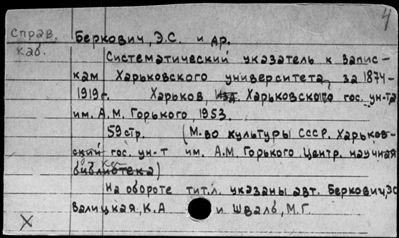 4
Справ. каб.
Беркович, Э.С. и др.
Систематический указатель к запис-
кам Харьковского университета, за 1874-
1919г. Харьков, Изд. Харьковского гос. ун-та
им. А.М. Горького, 1953.
59 стр. (М-во культуры СССР. Харьков-
ский гос. ун-т им. А.М. Горького Центр. научная
библиотека)
На обороте тит.л. указаны авт. Беркович, ЭС
Валицкая, К.А и Шваль, М.Г.
X